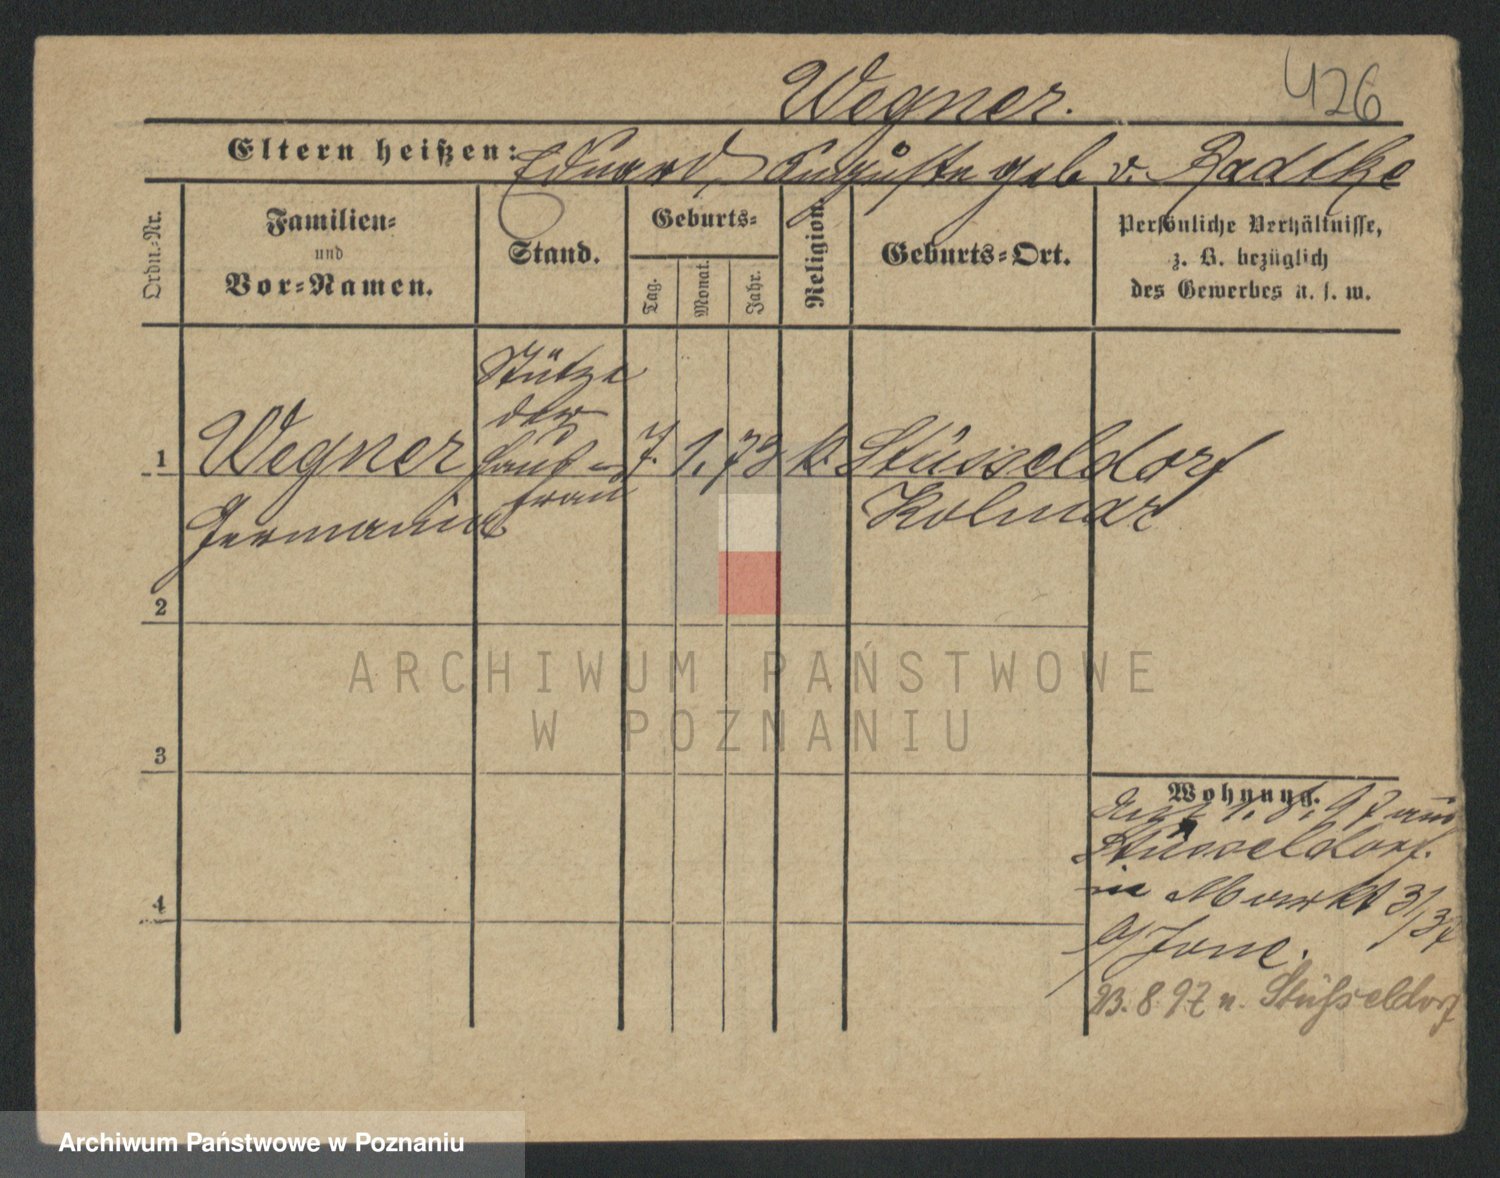 Wegner.
426
Eltern heißen: Eduard, Auguste geb v. Radtke
Ordn.-Nr.
Familien-
und
Vor-Namen.
Stand.
Geburts-
Tag.
Monat.
Jahr.
Religion.
Geburts-Ort.
Persönliche Verhältnisse,
z. B. bezüglich
des Gewerbes u. s. w.
1
Wegner
Stütze
der
Haus-
frau
7. 1. 73 k. Stüsseldorf
Kolmar
2
ARCHIWUM PAŃSTWOWE
W POZNANIU
3
Wohnung.
1. 8. 97 aus
Stüsseldorf.
in Markt
4
23. 8. 97 n. Stüsseldorf
Archiwum Państwowe w Poznaniu